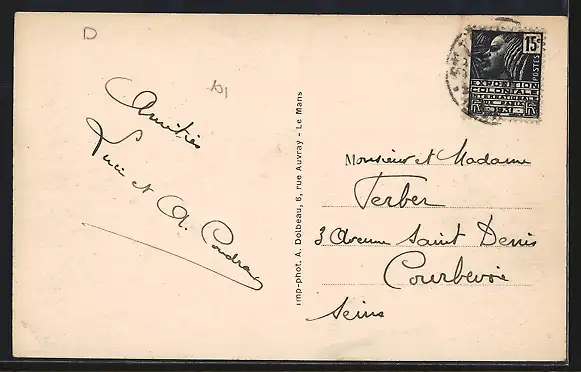 D
101
Amitiés
Lucie et A.
Imp-phot. A. Dolbeau, 6, rue Auvray - Le Mans
15c
POSTES
EXPOSITION
COLONIALE
INTERNATIONALE
DE PARIS
1931
Monsieur et Madame
Ferber
3 Avenue Saint Denis
Courbevoie
Seine